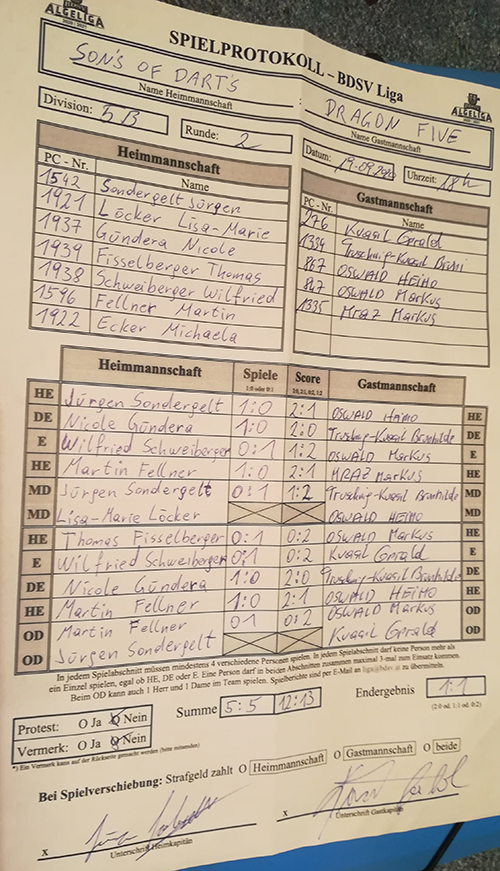 ALGELIGA
SPIELPROTOKOLL – BDSV Liga
ALGELIGA
SON'S OF DART'S : DRAGON FIVE
Name Heimmannschaft Name Gastmannschaft
Division: 5B Runde: 2 Datum: 19.09. Uhrzeit: 18h
Heimmannschaft
PC - Nr. Name
1542 Sondergelt Jürgen
1921 Löcker Lisa-Marie
1937 Gündera Nicole
1939 Fisselberger Thomas
1938 Schweiberger Wilfried
1596 Fellner Martin
1922 Ecker Michaela
Gastmannschaft
PC - Nr. Name
276 Kvasil Gerald
1334
867 OSWALD HEIMO
847 OSWALD MARKUS
1335 MRAZ MARKUS
Heimmannschaft Spiele Score Gastmannschaft
1:0 oder 0:1
HE Jürgen Sondergelt 1:0 2:1 OSWALD HEIMO HE
DE Nicole Gündera 1:0 2:0 DE
E Wilfried Schweiberger 0:1 1:2 OSWALD MARKUS E
HE Martin Fellner 1:0 2:1 MRAZ MARKUS HE
MD Jürgen Sondergelt 0:1 1:2 MD
MD Lisa-Marie Löcker OSWALD HEIMO MD
HE Thomas Fisselberger 0:1 0:2 OSWALD MARKUS HE
E Wilfried Schweiberger 0:1 0:2 Kvasil Gerald E
DE Nicole Gündera 1:0 2:0 DE
HE Martin Fellner 1:0 2:1 OSWALD HEIMO HE
OD Martin Fellner 0:1 0:2 OSWALD MARKUS OD
OD Jürgen Sondergelt Kvasil Gerald OD
In jedem Spielabschnitt müssen mindestens 4 verschiedene Personen spielen. In jedem Spielabschnitt darf keine Person mehr als
ein Einzel spielen, egal ob HE, DE oder E. Eine Person darf in beiden Abschnitten zusammen maximal 3-mal zum Einsatz kommen.
Beim OD kann auch 1 Herr und 1 Dame im Team spielen. Spielberichte sind per E-Mail an liga@bdsv.at zu übermitteln.
Protest: O Ja O Nein Summe 5:5 12:13 Endergebnis 1:1
Vermerk: O Ja O Nein (2:0 od. 1:1 od. 0:2)
*) Ein Vermerk kann auf der Rückseite gemacht werden (bitte ankreuzen)
Bei Spielverschiebung: Strafgeld zahlt O Heimmannschaft O Gastmannschaft O beide
x x
Unterschrift Heimkapitän Unterschrift Gastkapitän